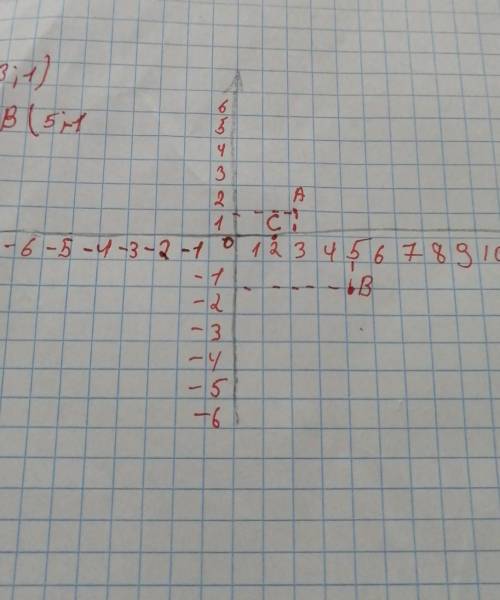 3;1)
B(5;-1
6
5
4
3
2
1
A
C
-6 -5 -4 -3 -2 -1 0 1 2 3 4 5 6 7 8 9 10
-1
B
-2
-3
-4
-5
-6